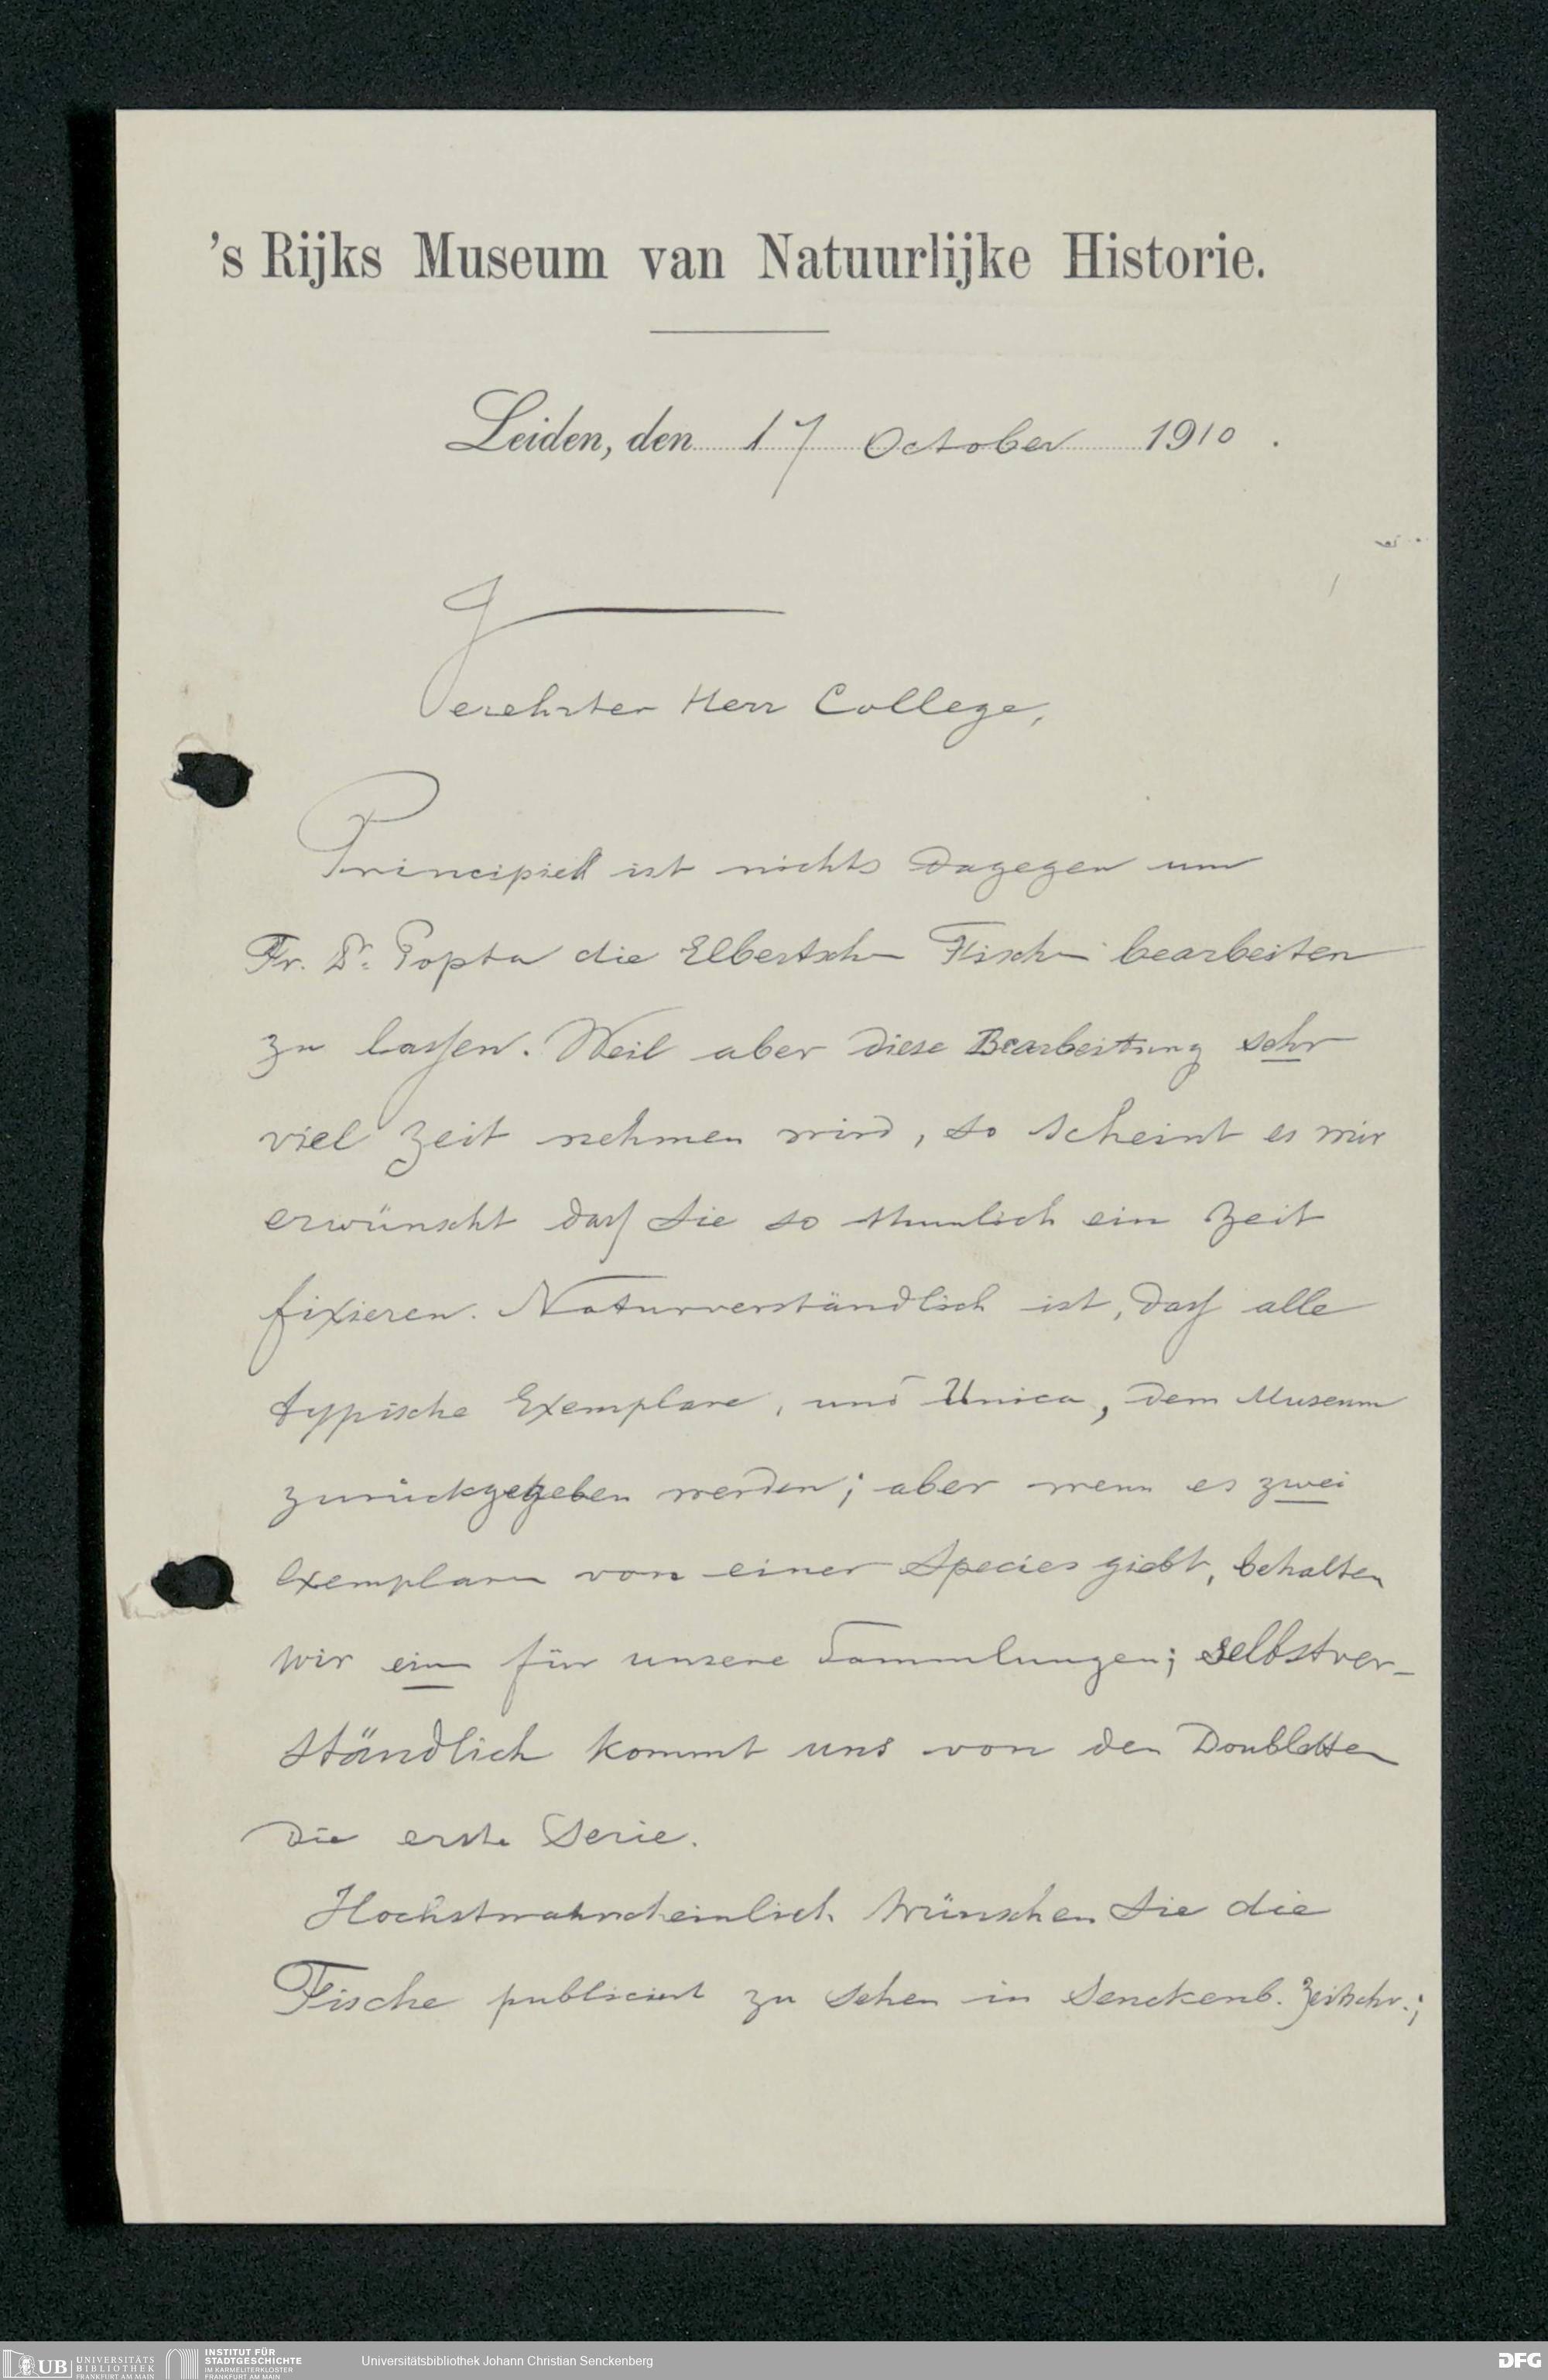 's Rijks Museum van Natuurlijke Historie.
Leiden, den 17 October 1910.
Verehrter Herr College,
Principiell ist nichts dagegen um
Fr. Dr. Popta die Elbertschen Fische bearbeiten
zu lassen. Weil aber diese Bearbeitung sehr
viel Zeit nehmen wird, so scheint es mir
erwünscht dass Sie so thunlich ein Zeit
fixieren. Naturverständlich ist, dass alle
typische Exemplare, und Unica, dem Museum
zurückgegeben werden; aber wenn es zwei
Exemplare von einer Species giebt, behalten
wir ein für unsere Sammlungen; selbstver-
ständlich kommt uns von den Doubletten
die erste Serie.
Hochstwahrscheinlich wünschen Sie die
Fische publiciert zu sehen in Senckenb. Zeitschr.;
UB UNIVERSITÄTS BIBLIOTHEK FRANKFURT AM MAIN
INSTITUT FÜR STADTGESCHICHTE IM KARMELITERKLOSTER FRANKFURT AM MAIN
Universitätsbibliothek Johann Christian Senckenberg
DFG